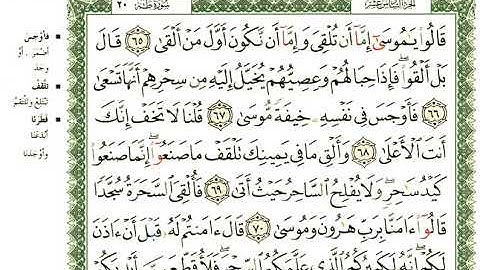 الجزء السادس عشر
سورة طه ٢٠
قَالُوا۟ يَـٰمُوسَىٰٓ إِمَّآ أَن تُلْقِىَ وَإِمَّآ أَن نَّكُونَ أَوَّلَ مَنْ أَلْقَىٰ ٦٥ قَالَ
بَلْ أَلْقُوا۟ فَإِذَا حِبَالُهُمْ وَعِصِيُّهُمْ يُخَيَّلُ إِلَيْهِ مِن سِحْرِهِمْ أَنَّهَا تَسْعَىٰ
٦٦ فَأَوْجَسَ فِى نَفْسِهِۦ خِيفَةً مُّوسَىٰ ٦٧ قُلْنَا لَا تَخَفْ إِنَّكَ
أَنتَ ٱلْأَعْلَىٰ ٦٨ وَأَلْقِ مَا فِى يَمِينِكَ تَلْقَفْ مَا صَنَعُوٓا۟ إِنَّمَا صَنَعُوا۟
كَيْدُ سَـٰحِرٍ وَلَا يُفْلِحُ ٱلسَّاحِرُ حَيْثُ أَتَىٰ ٦٩ فَأُلْقِىَ ٱلسَّحَرَةُ سُجَّدًا
قَالُوٓا۟ ءَامَنَّا بِرَبِّ هَـٰرُونَ وَمُوسَىٰ ٧٠ قَالَ ءَامَنتُمْ لَهُۥ قَبْلَ أَنْ ءَاذَنَ
لَكُمْ إِنَّهُۥ لَكَبِيرُكُمُ ٱلَّذِى عَلَّمَكُمُ ٱلسِّحْرَ فَلَأُقَطِّعَنَّ أَيْدِيَكُمْ
فأوجسَ
أضمر . أو
وجد
تلقفْ
تبتلع وتلتقم
فطرنا
أبدعنا
وأوجدنا